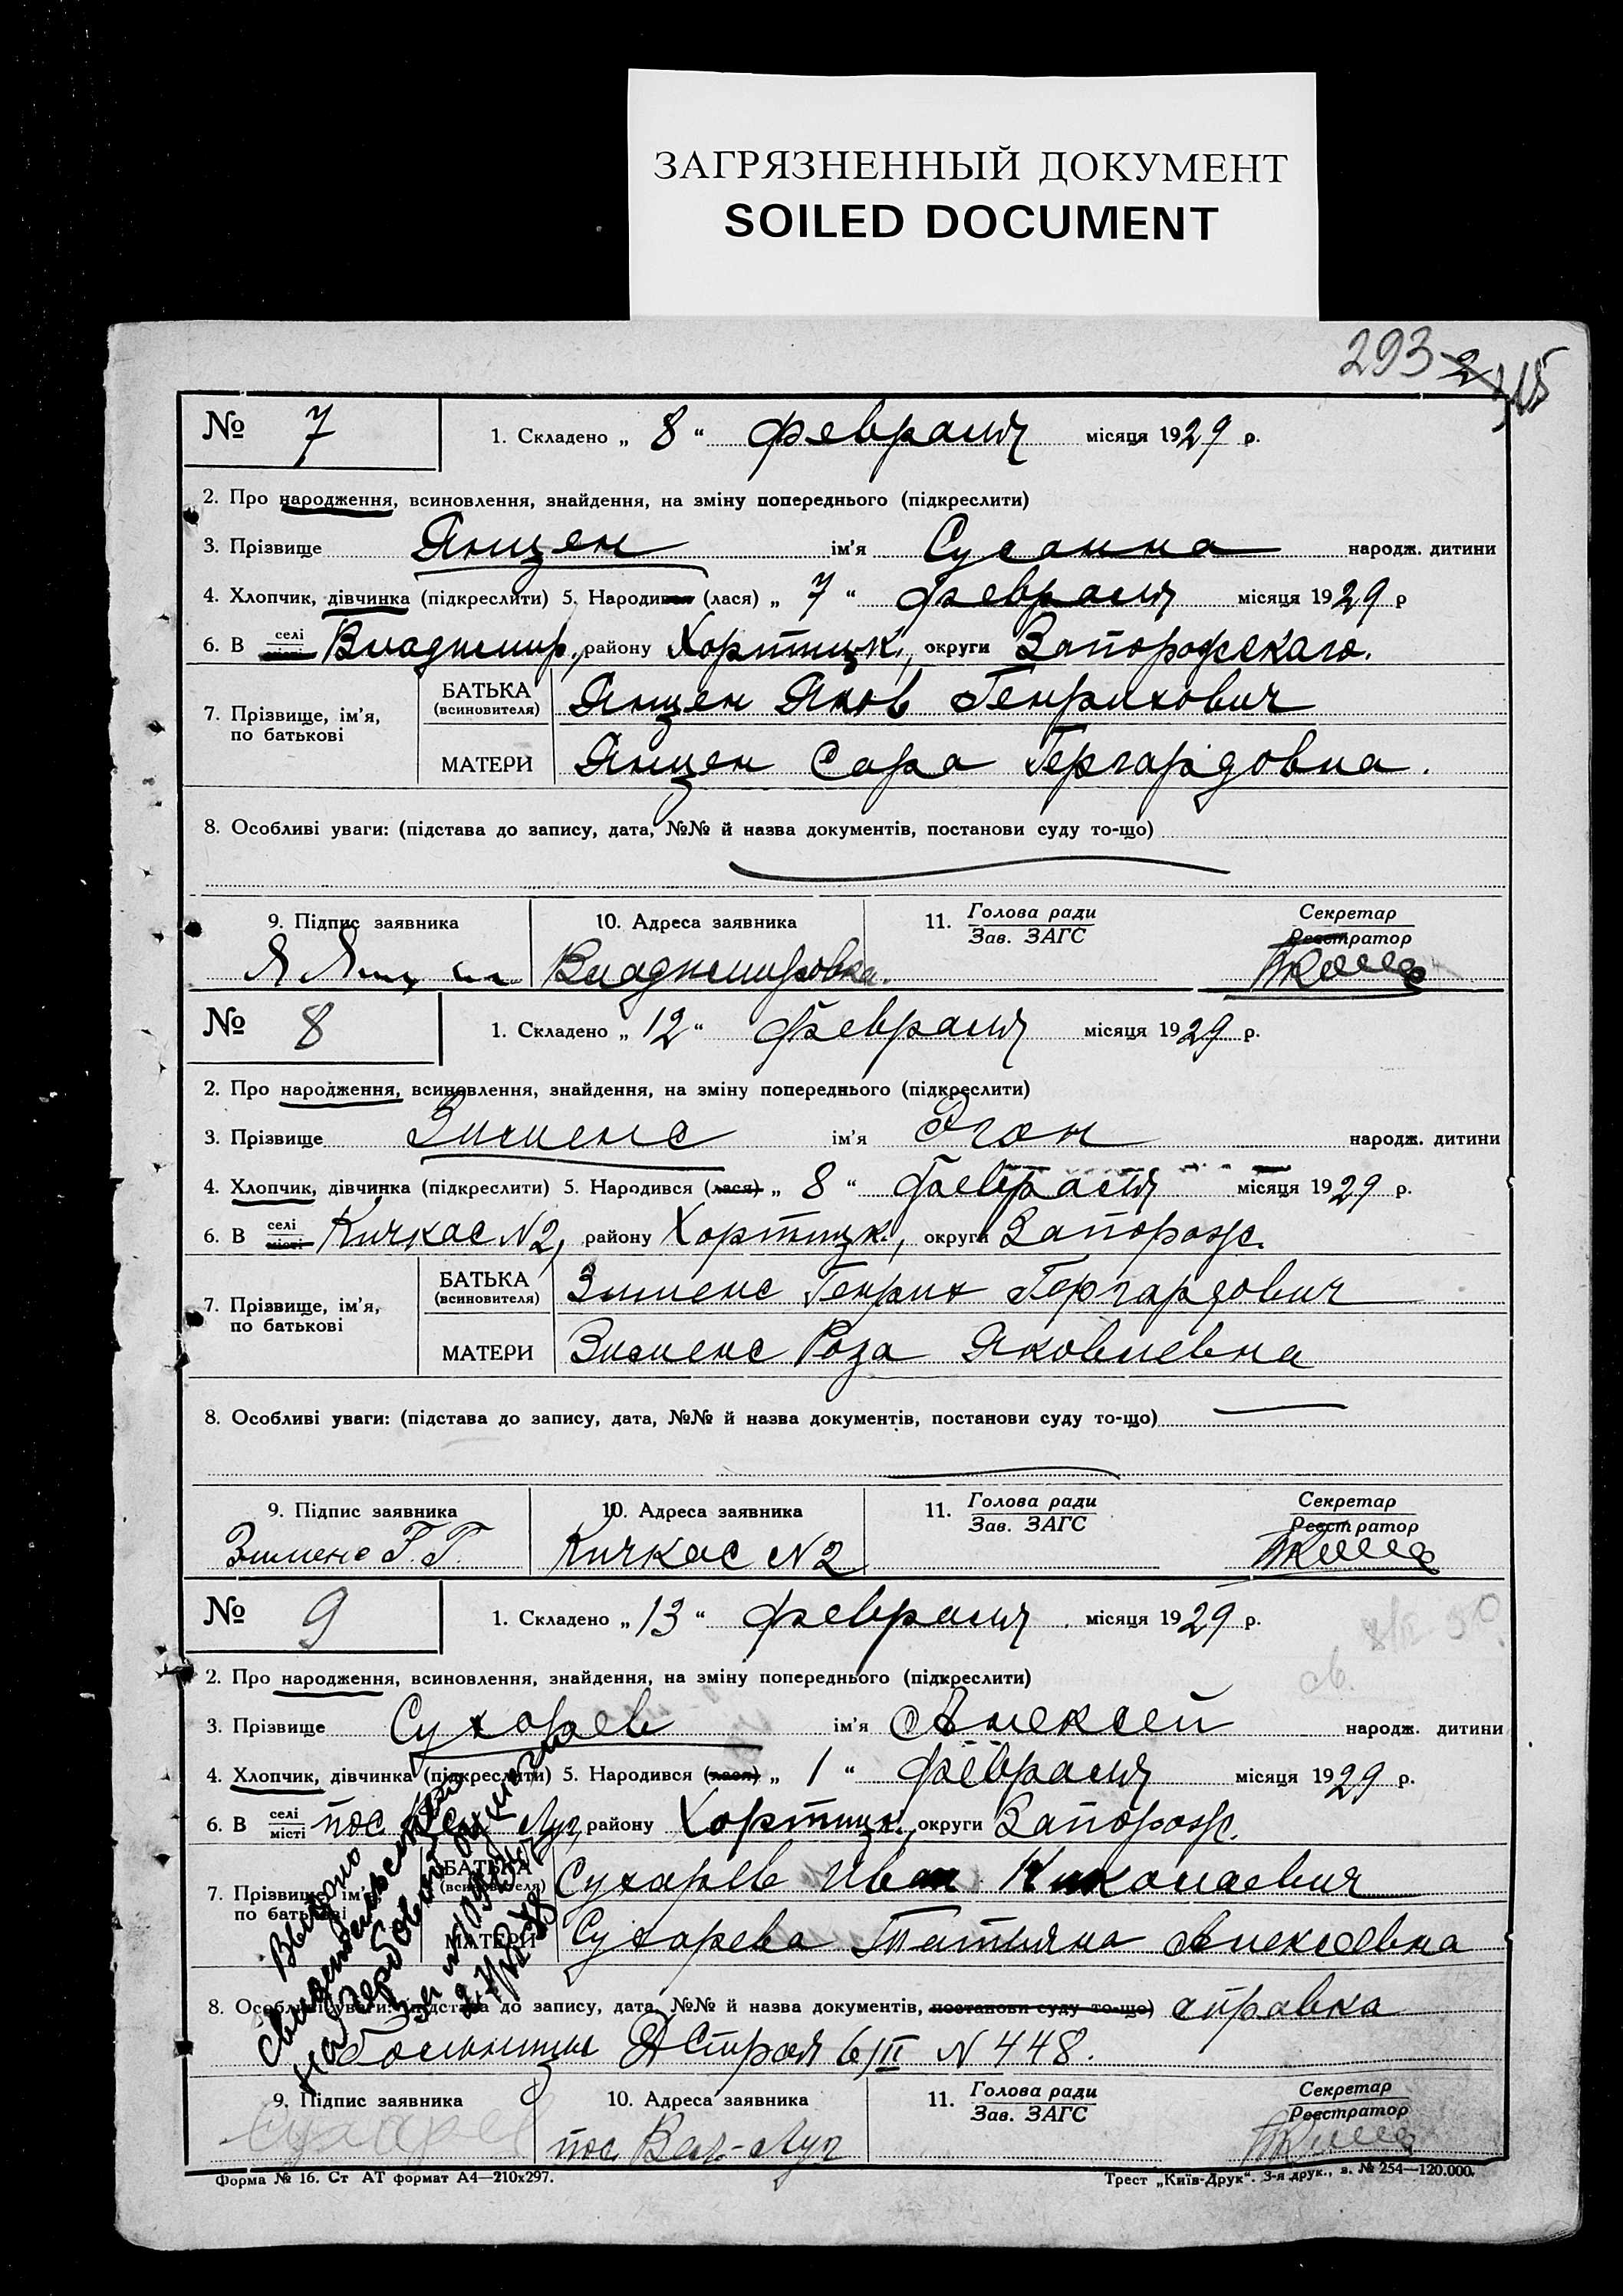 ЗАГРЯЗНЕННЫЙ ДОКУМЕНТ
SOILED DOCUMENT
293
№ 7 1. Складено „ 8 “ февраля місяця 1929 р.
2. Про народження, всиновлення, знайдення, на зміну попереднього (підкреслити)
3. Прізвище Янцен ім'я Сусанна народж. дитини
4. Хлопчик, дівчинка (підкреслити) 5. Народився (лася) „ 7 “ февраля місяця 1929 р
6. В селі місті Владимир., району Хортицк., округи Запорожскаго.
7. Прізвище, ім'я, по батькові
БАТЬКА (всиновителя) Янцен Яков Генрихович
МАТЕРИ Янцен Сара Гергардовна.
8. Особливі уваги: (підстава до запису, дата, №№ й назва документів, постанови суду то-що)
9. Підпис заявника 10. Адреса заявника 11. Голова ради Зав. ЗАГС Секретар Реєстратор
Я Янцен Владимировка.
№ 8 1. Складено „ 12 “ февраля місяця 1929 р.
2. Про народження, всиновлення, знайдення, на зміну попереднього (підкреслити)
3. Прізвище Зименс ім'я Оган народж. дитини
4. Хлопчик, дівчинка (підкреслити) 5. Народився (лася) „ 8 “ февраля місяця 1929 р.
6. В селі місті Кичкас N2, району Хортицк., округи Запорож.
7. Прізвище, ім'я, по батькові
БАТЬКА (всиновителя) Зименс Генрих Гергардович
МАТЕРИ Зименс Роза Яковлевна
8. Особливі уваги: (підстава до запису, дата, №№ й назва документів, постанови суду то-що)
9. Підпис заявника 10. Адреса заявника 11. Голова ради Зав. ЗАГС Секретар Реєстратор
Зименс Г. Г. Кичкас N2
№ 9 1. Складено „ 13 “ февраля місяця 1929 р.
2. Про народження, всиновлення, знайдення, на зміну попереднього (підкреслити)
3. Прізвище Сухарев ім'я Алексей народж. дитини
4. Хлопчик, дівчинка (підкреслити) 5. Народився (лася) „ 1 “ февраля місяця 1929 р.
6. В селі місті пос. Вел. Луг, району Хортицк., округи Запорож.
7. Прізвище, ім'я, по батькові
БАТЬКА (всиновителя) Сухарев Иван Николаевич
МАТЕРИ Сухарева Татьяна Алексеевна
Выдано
свидетельство
на гербовой бумаге
8. Особливі уваги: (підстава до запису, дата, №№ й назва документів, постанови суду то-що) справка
больницы ДСтроя 6/II N 448.
9. Підпис заявника 10. Адреса заявника 11. Голова ради Зав. ЗАГС Секретар Реєстратор
Сухарев пос. Вел.-Луг
Форма № 16. Ст АТ формат А4—210х297. Трест „Київ-Друк“. 3-я друк., з. № 254—120.000.